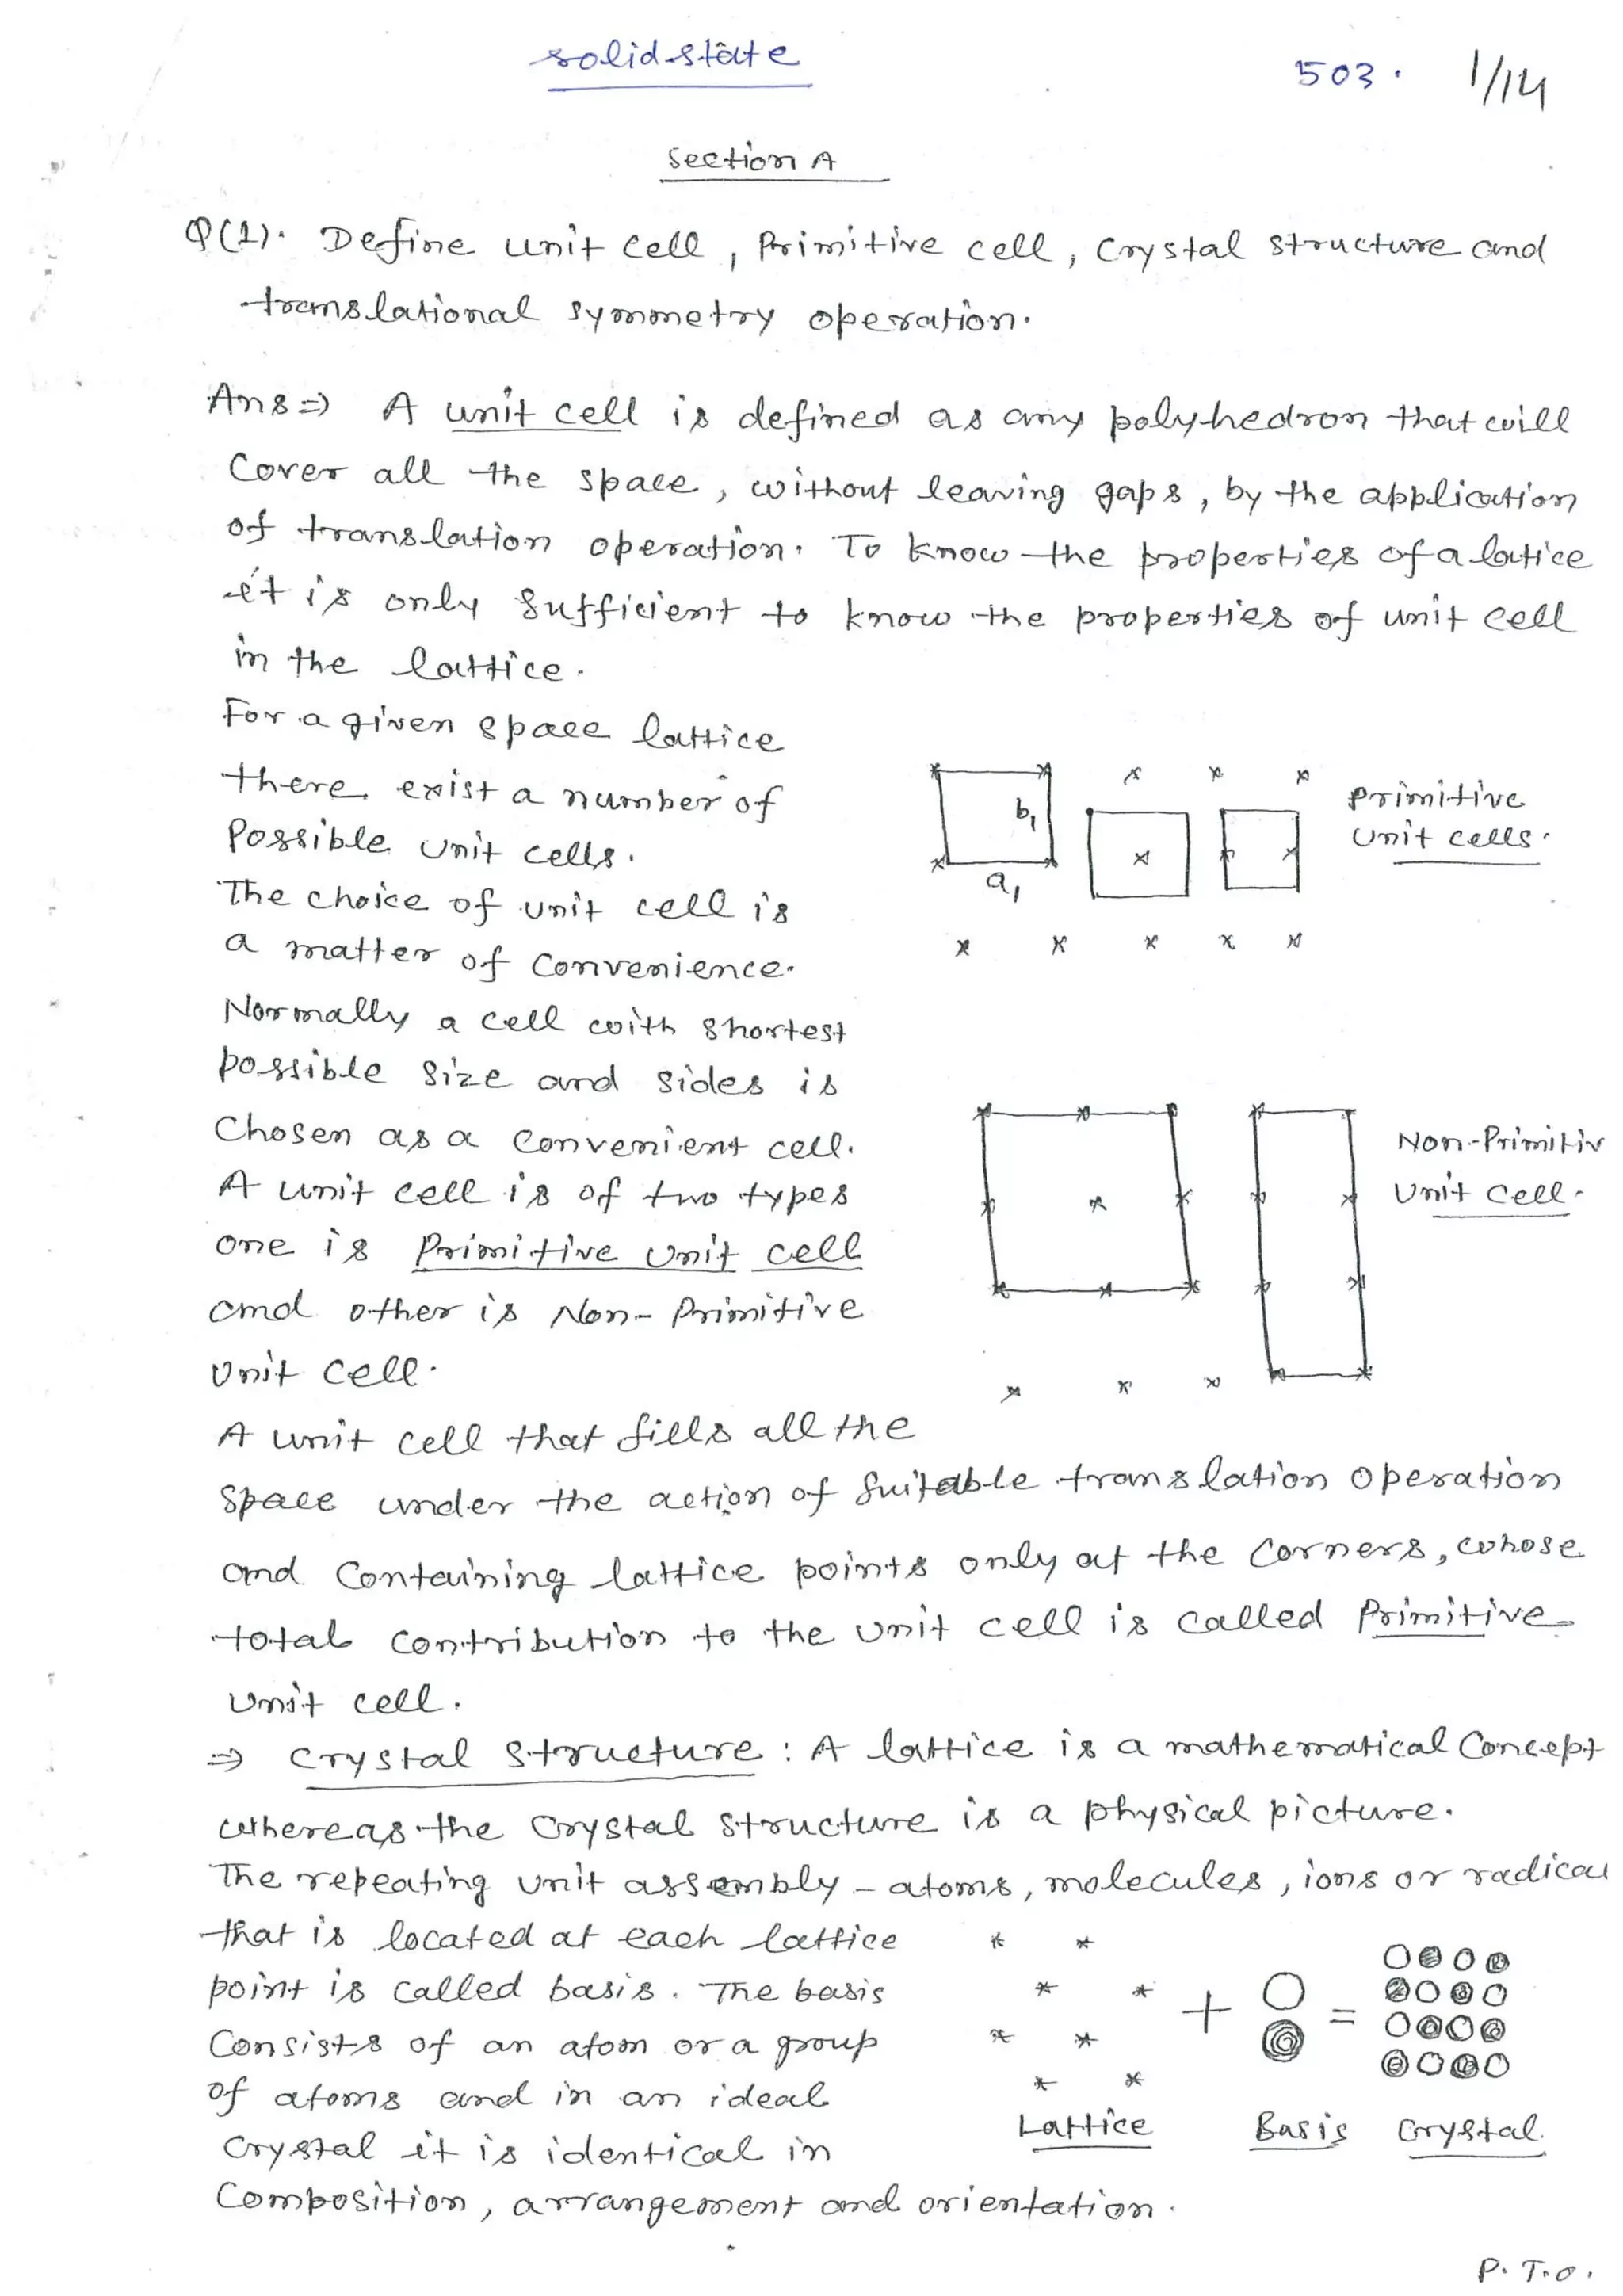 solid state
503. 1/14
Section A
Q(1). Define unit cell, Primitive cell, Crystal structure and
translational symmetry operation.
Ans⇒ A unit cell is defined as any polyhedron that will
Cover all the space, without leaving gaps, by the application
of translation operation. To know the properties of a latice
it is only sufficient to know the properties of unit cell
in the lattice.
For a given space lattice
there exist a number of
Possible unit cells.
The choice of unit cell is
a matter of convenience.
Normally a cell with shortest
possible size and sides is
Chosen as a convenient cell.
A unit cell is of two types
one is Primitive unit cell
and other is Non-Primitive
Unit cell.
b₁
a₁
Primitive
Unit cells.
Non-Primitiv
Unit cell.
A unit cell that fills all the
space under the action of suitable translation operation
and Containing lattice points only at the corners, whose
total contribution to the unit cell is called Primitive
Unit cell.
⇒ Crystal Structure : A lattice is a mathematical Concept
whereas the crystal structure is a physical picture.
The repeating unit assembly - atoms, molecules, ions or radical
that is located at each lattice
point is called basis. The basis
Consists of an atom or a group
of atoms and in an ideal
Crystal it is identical in
Composition, arrangement and orientation.
+ =
Lattice Basis Crystal.
P.T.O.